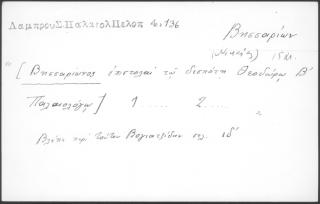 Λάμπρου Σ. Παλαιολ Πελοπ 4ος, 136
Βησσαρίων
(Νικαίας) 15 αι.
"[Βησσαρίωνος ἐπιστολαὶ τῷ δεσπότῃ Θεοδώρῳ Β'
Παλαιολόγῳ] 1...... 2......."
Βλέπε περὶ τούτου Βογιατζίδην σελ. ιδ'